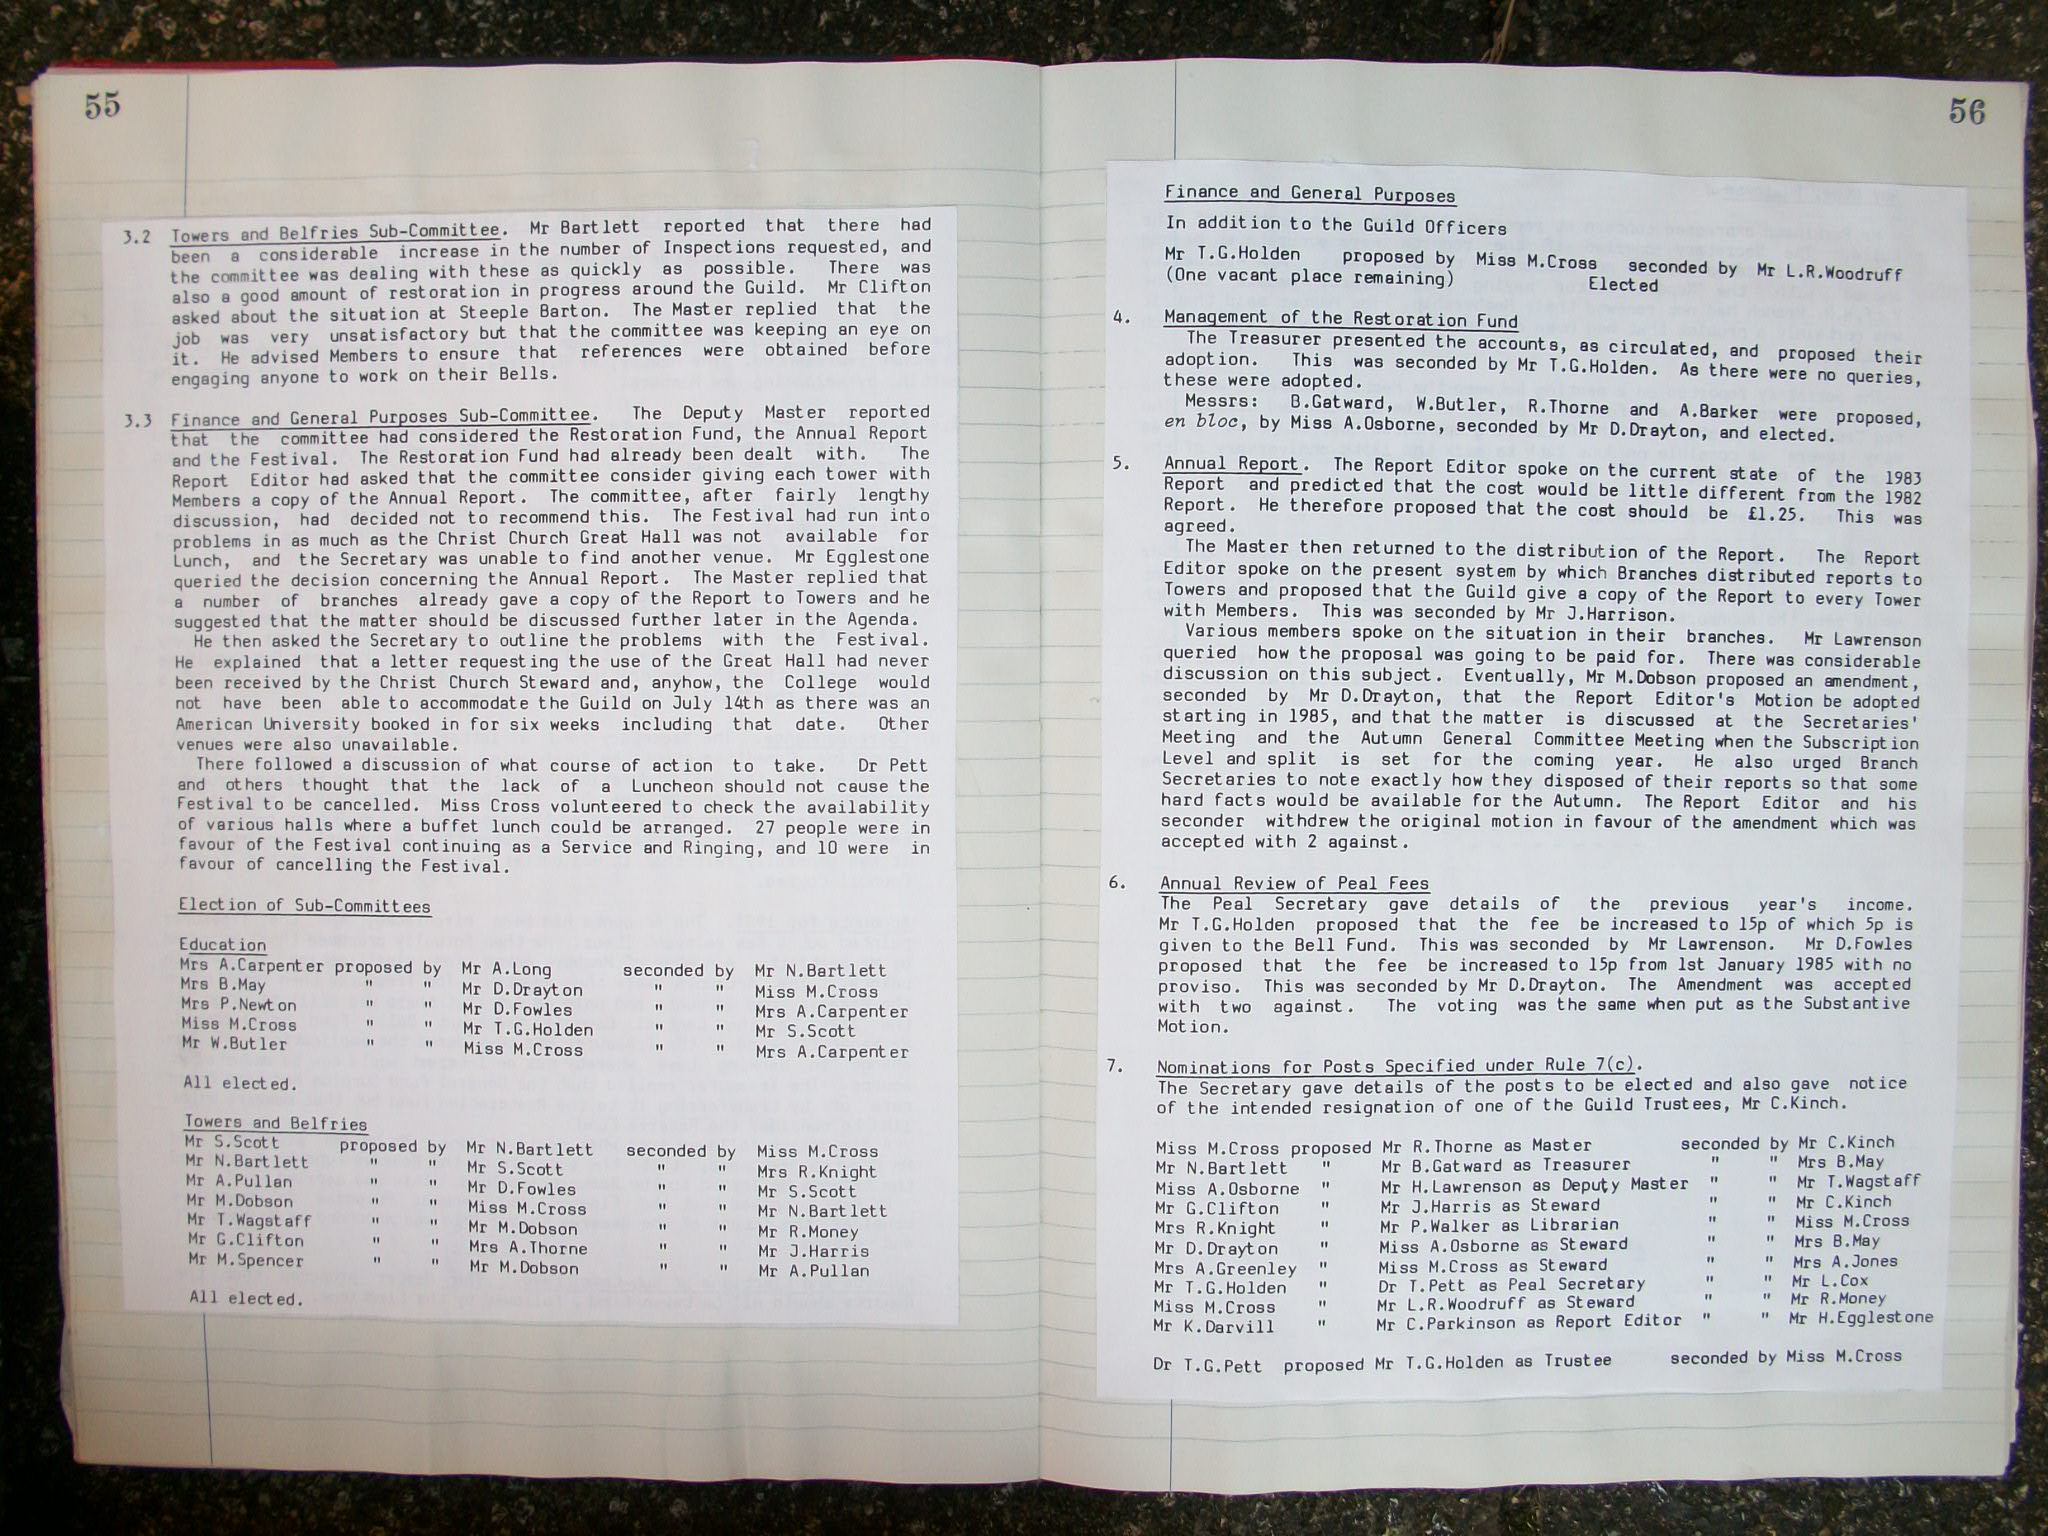 55
3.2 Towers and Belfries Sub-Committee. Mr Bartlett reported that there had
been a considerable increase in the number of Inspections requested, and
the committee was dealing with these as quickly as possible. There was
also a good amount of restoration in progress around the Guild. Mr Clifton
asked about the situation at Steeple Barton. The Master replied that the
job was very unsatisfactory but that the committee was keeping an eye on
it. He advised Members to ensure that references were obtained before
engaging anyone to work on their Bells.
3.3 Finance and General Purposes Sub-Committee. The Deputy Master reported
that the committee had considered the Restoration Fund, the Annual Report
and the Festival. The Restoration Fund had already been dealt with. The
Report Editor had asked that the committee consider giving each tower with
Members a copy of the Annual Report. The committee, after fairly lengthy
discussion, had decided not to recommend this. The Festival had run into
problems in as much as the Christ Church Great Hall was not available for
Lunch, and the Secretary was unable to find another venue. Mr Egglestone
queried the decision concerning the Annual Report. The Master replied that
a number of branches already gave a copy of the Report to Towers and he
suggested that the matter should be discussed further later in the Agenda.
He then asked the Secretary to outline the problems with the Festival.
He explained that a letter requesting the use of the Great Hall had never
been received by the Christ Church Steward and, anyhow, the College would
not have been able to accommodate the Guild on July 14th as there was an
American University booked in for six weeks including that date. Other
venues were also unavailable.
There followed a discussion of what course of action to take. Dr Pett
and others thought that the lack of a Luncheon should not cause the
Festival to be cancelled. Miss Cross volunteered to check the availability
of various halls where a buffet lunch could be arranged. 27 people were in
favour of the Festival continuing as a Service and Ringing, and 10 were in
favour of cancelling the Festival.
Election of Sub-Committees
Education
Mrs A.Carpenter proposed by Mr A.Long seconded by Mr N.Bartlett
Mrs B.May " " Mr D.Drayton " " Miss M.Cross
Mrs P.Newton " " Mr D.Fowles " " Mrs A.Carpenter
Miss M.Cross " " Mr T.G.Holden " " Mr S.Scott
Mr W.Butler " " Miss M.Cross " " Mrs A.Carpenter
All elected.
Towers and Belfries
Mr S.Scott proposed by Mr N.Bartlett seconded by Miss M.Cross
Mr N.Bartlett " " Mr S.Scott " " Mrs R.Knight
Mr A.Pullan " " Mr D.Fowles " " Mr S.Scott
Mr M.Dobson " " Miss M.Cross " " Mr N.Bartlett
Mr T.Wagstaff " " Mr M.Dobson " " Mr R.Money
Mr G.Clifton " " Mrs A.Thorne " " Mr J.Harris
Mr M.Spencer " " Mr M.Dobson " " Mr A.Pullan
All elected.
56
Finance and General Purposes
In addition to the Guild Officers
Mr T.G.Holden proposed by Miss M.Cross seconded by Mr L.R.Woodruff
(One vacant place remaining) Elected
4. Management of the Restoration Fund
The Treasurer presented the accounts, as circulated, and proposed their
adoption. This was seconded by Mr T.G.Holden. As there were no queries,
these were adopted.
Messrs: B.Gatward, W.Butler, R.Thorne and A.Barker were proposed,
en bloc, by Miss A.Osborne, seconded by Mr D.Drayton, and elected.
5. Annual Report. The Report Editor spoke on the current state of the 1983
Report and predicted that the cost would be little different from the 1982
Report. He therefore proposed that the cost should be £1.25. This was
agreed.
The Master then returned to the distribution of the Report. The Report
Editor spoke on the present system by which Branches distributed reports to
Towers and proposed that the Guild give a copy of the Report to every Tower
with Members. This was seconded by Mr J.Harrison.
Various members spoke on the situation in their branches. Mr Lawrenson
queried how the proposal was going to be paid for. There was considerable
discussion on this subject. Eventually, Mr M.Dobson proposed an amendment,
seconded by Mr D.Drayton, that the Report Editor's Motion be adopted
starting in 1985, and that the matter is discussed at the Secretaries'
Meeting and the Autumn General Committee Meeting when the Subscription
Level and split is set for the coming year. He also urged Branch
Secretaries to note exactly how they disposed of their reports so that some
hard facts would be available for the Autumn. The Report Editor and his
seconder withdrew the original motion in favour of the amendment which was
accepted with 2 against.
6. Annual Review of Peal Fees
The Peal Secretary gave details of the previous year's income.
Mr T.G.Holden proposed that the fee be increased to 15p of which 5p is
given to the Bell Fund. This was seconded by Mr Lawrenson. Mr D.Fowles
proposed that the fee be increased to 15p from 1st January 1985 with no
proviso. This was seconded by Mr D.Drayton. The Amendment was accepted
with two against. The voting was the same when put as the Substantive
Motion.
7. Nominations for Posts Specified under Rule 7(c).
The Secretary gave details of the posts to be elected and also gave notice
of the intended resignation of one of the Guild Trustees, Mr C.Kinch.
Miss M.Cross proposed Mr R.Thorne as Master seconded by Mr C.Kinch
Mr N.Bartlett " Mr B.Gatward as Treasurer " " Mrs B.May
Miss A.Osborne " Mr H.Lawrenson as Deputy Master " " Mr T.Wagstaff
Mr G.Clifton " Mr J.Harris as Steward " " Mr C.Kinch
Mrs R.Knight " Mr P.Walker as Librarian " " Miss M.Cross
Mr D.Drayton " Miss A.Osborne as Steward " " Mrs B.May
Mrs A.Greenley " Miss M.Cross as Steward " " Mrs A.Jones
Mr T.G.Holden " Dr T.Pett as Peal Secretary " " Mr L.Cox
Miss M.Cross " Mr L.R.Woodruff as Steward " " Mr R.Money
Mr K.Darvill " Mr C.Parkinson as Report Editor " " Mr H.Egglestone
Dr T.G.Pett proposed Mr T.G.Holden as Trustee seconded by Miss M.Cross